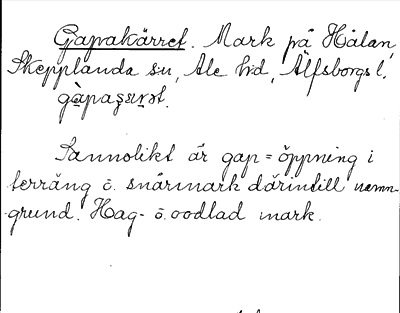 Gapakärret. Mark på Hålan,
Skepplanda sn, Ale hd, Älfsborgs l.
Sannolikt är gap = öppning i
terräng o. snårmark därintill namn-
grund. Hag- o. oodlad mark.